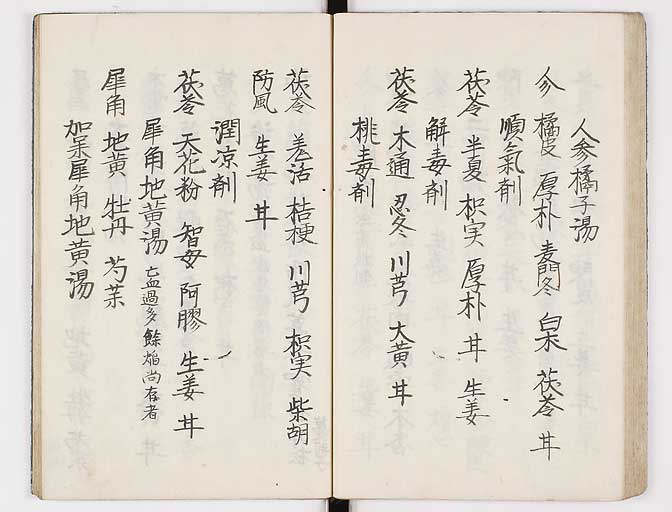 人参橘子湯
參 橘皮 厚朴 麦門冬 白朮 茯苓 甘
順氣剤
茯苓 半夏 枳实 厚朴 甘 生姜
解毒剤
茯苓 木通 忍冬 川芎 大黄 甘
桃毒剤
茯苓 羌活 桔梗 川芎 枳实 柴胡
防風 生姜 甘
潤凉剤
茯苓 天花粉 智母 阿膠 生姜 甘
犀角地黄湯 亡血過多餘焔尚存者
犀角 地黄 牡丹 芍薬
加味犀角地黄湯